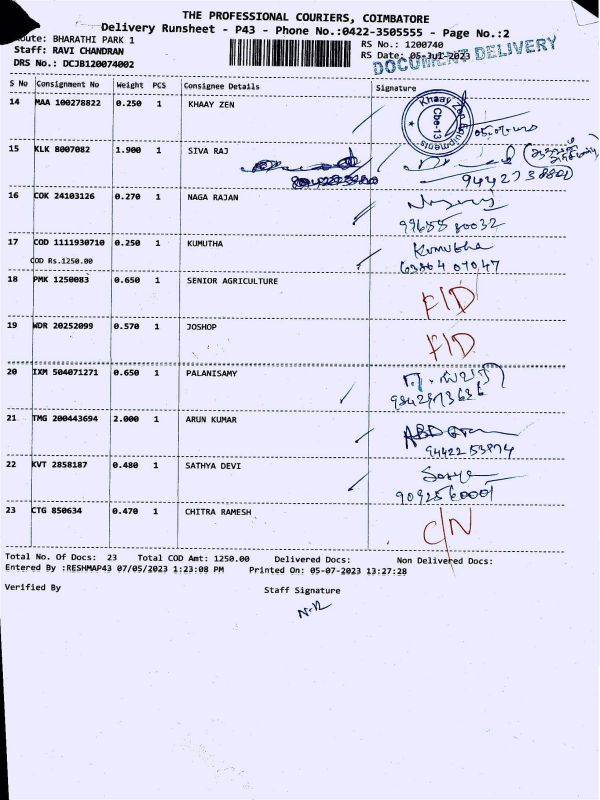 THE PROFESSIONAL COURIERS, COIMBATORE
Delivery Runsheet - P43 - Phone No.:0422-3505555 - Page No.:2
Route: BHARATHI PARK 1
RS No.: 1200740
Staff: RAVI CHANDRAN
RS Date: 05-Jul-2023
DOCUMENT DELIVERY
DRS No.: DCJB120074002
S No Consignment No Weight PCS Consignee Details Signature
14 MAA 100278822 0.250 1 KHAAY ZEN
Khaay Zen Equipments Cbe-13
15 KLK 8007082 1.900 1 SIVA RAJ
16 COK 24103126 0.270 1 NAGA RAJAN
9965580032
17 COD 1111930710 0.250 1 KUMUTHA Kumutha
COD Rs.1250.00 6386407047
18 PMK 1250083 0.650 1 SENIOR AGRICULTURE FID
19 WDR 20252099 0.570 1 JOSHOP FID
20 IXM 504071271 0.650 1 PALANISAMY
21 TMG 200443694 2.000 1 ARUN KUMAR
22 KVT 2858187 0.480 1 SATHYA DEVI
23 CTG 850634 0.470 1 CHITRA RAMESH C/N
Total No. Of Docs: 23 Total COD Amt: 1250.00 Delivered Docs: Non Delivered Docs:
Entered By :RESHMAP43 07/05/2023 1:23:08 PM Printed On: 05-07-2023 13:27:28
Verified By Staff Signature